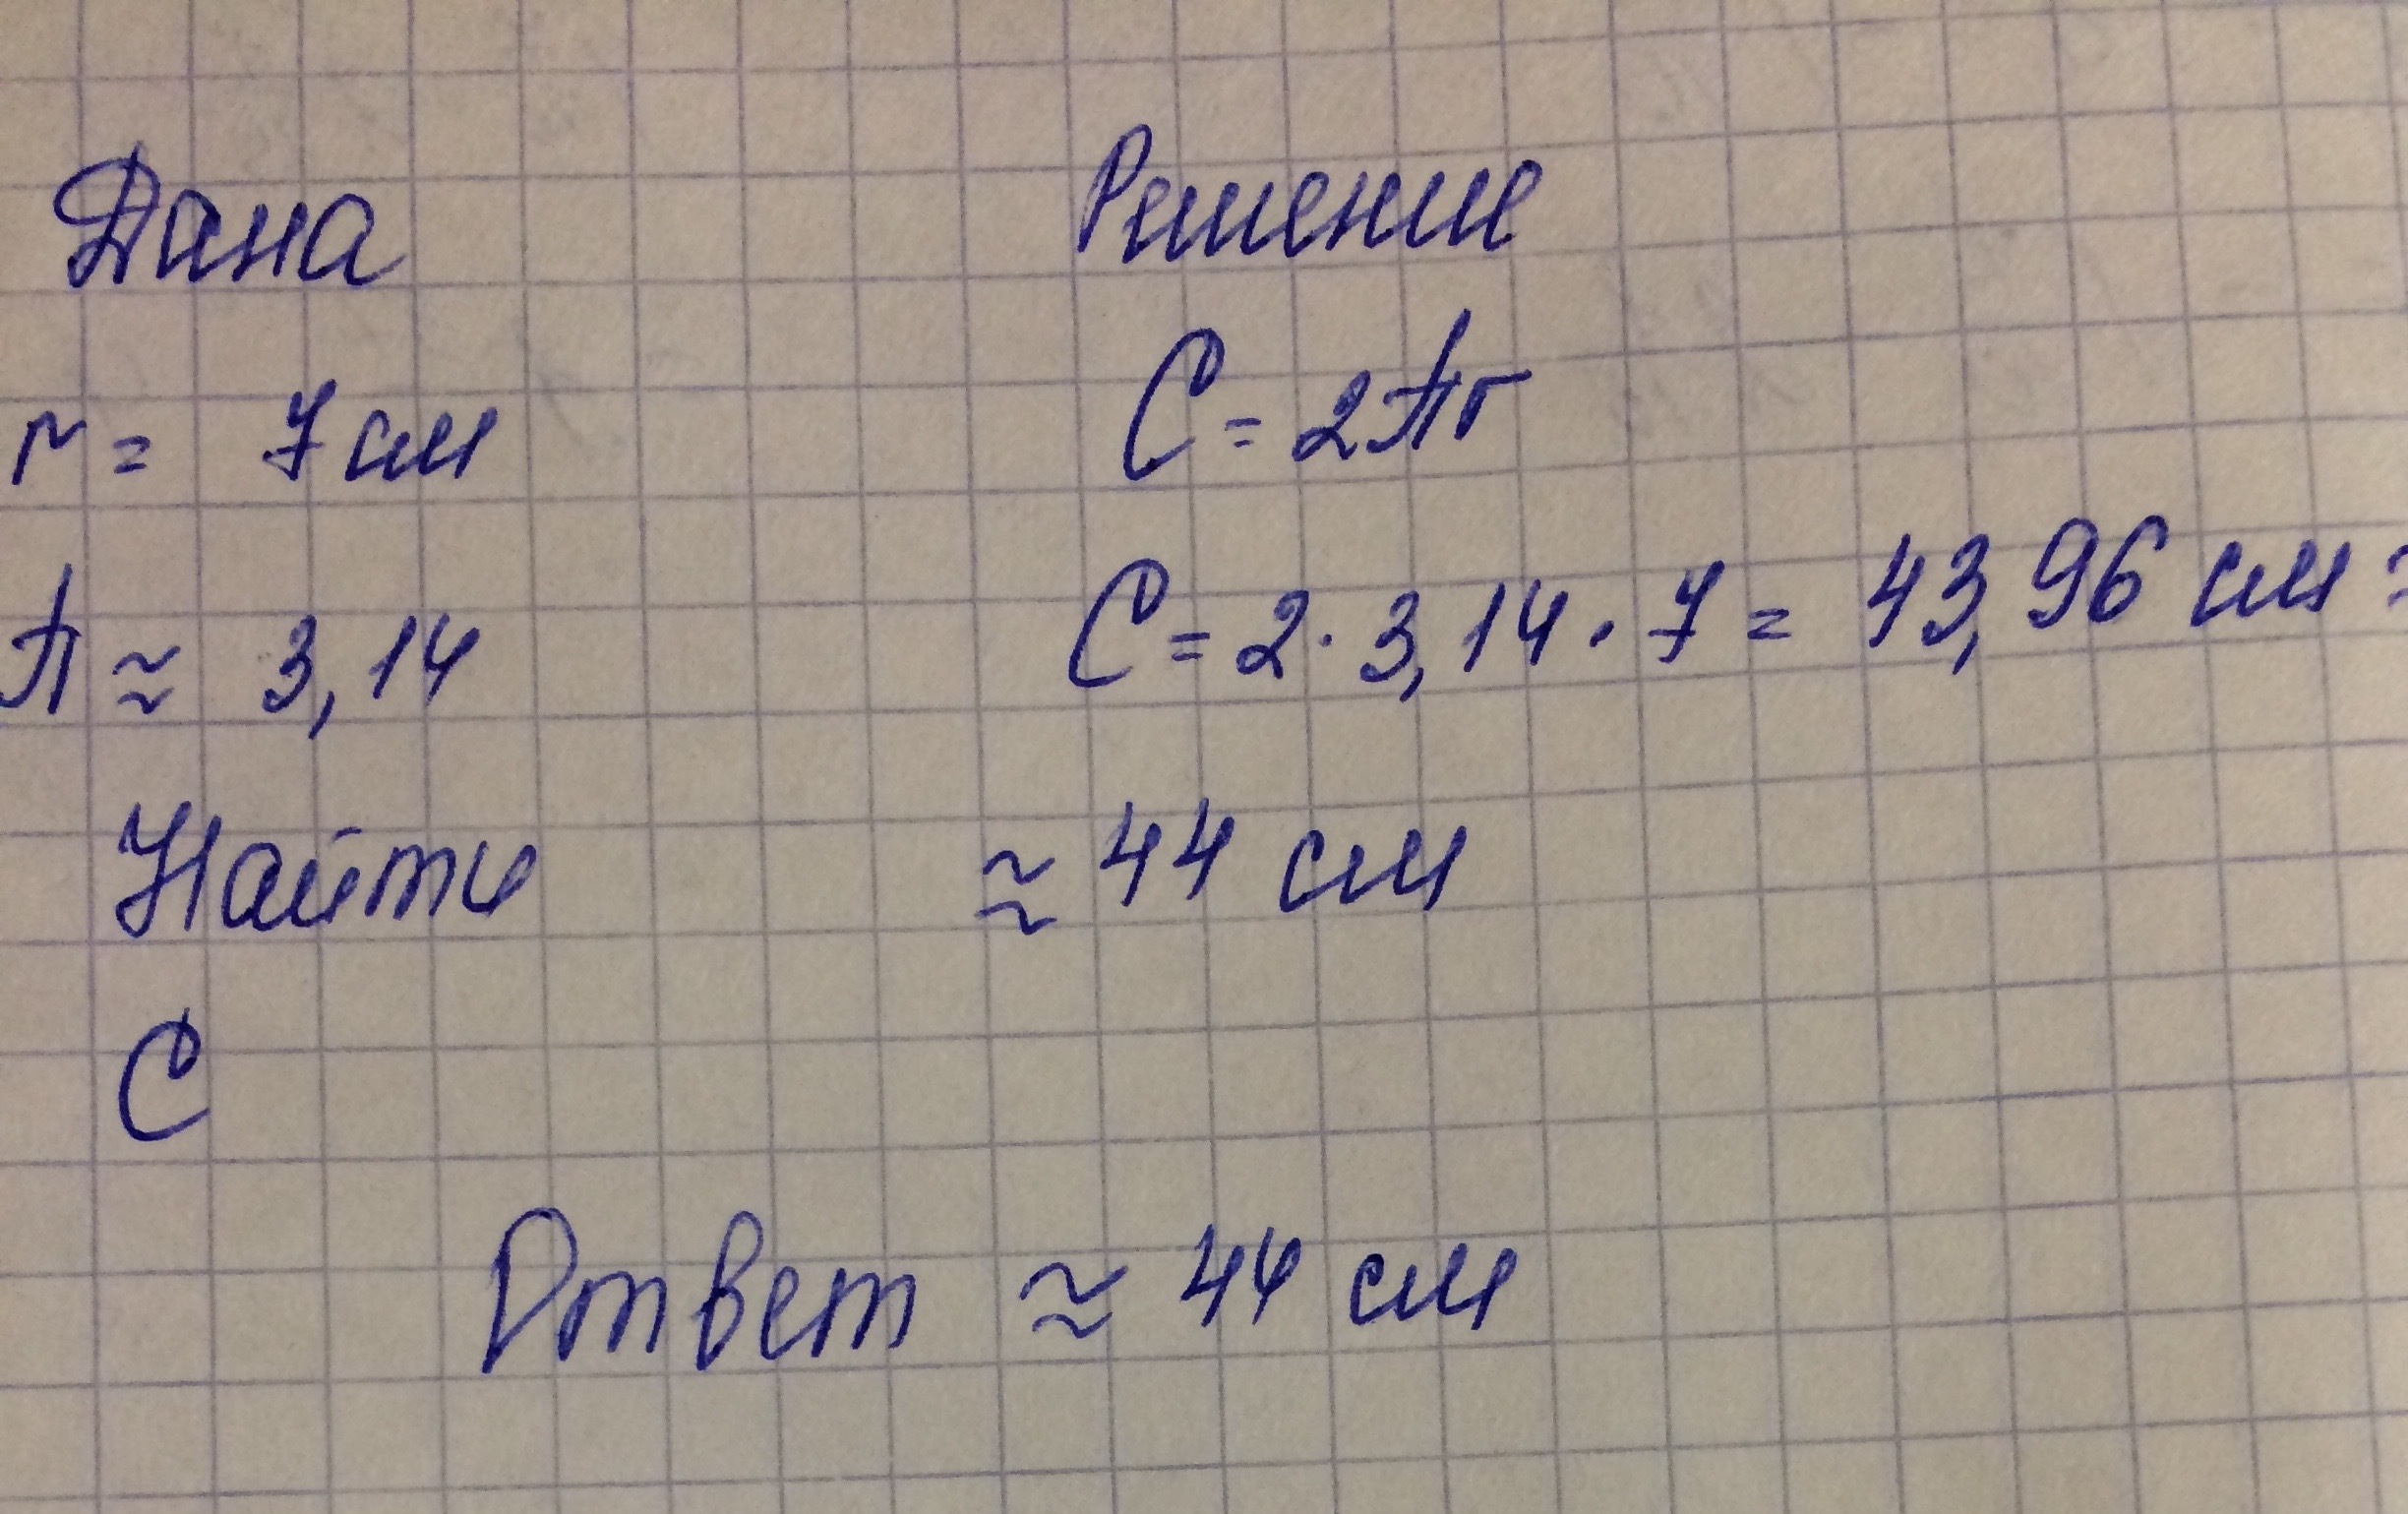 Дана
r = 7 см
π ≈ 3,14
Найти
C
Решение
C = 2πr
C = 2 · 3,14 · 7 = 43,96 см ≈
≈ 44 см
Ответ ≈ 44 см